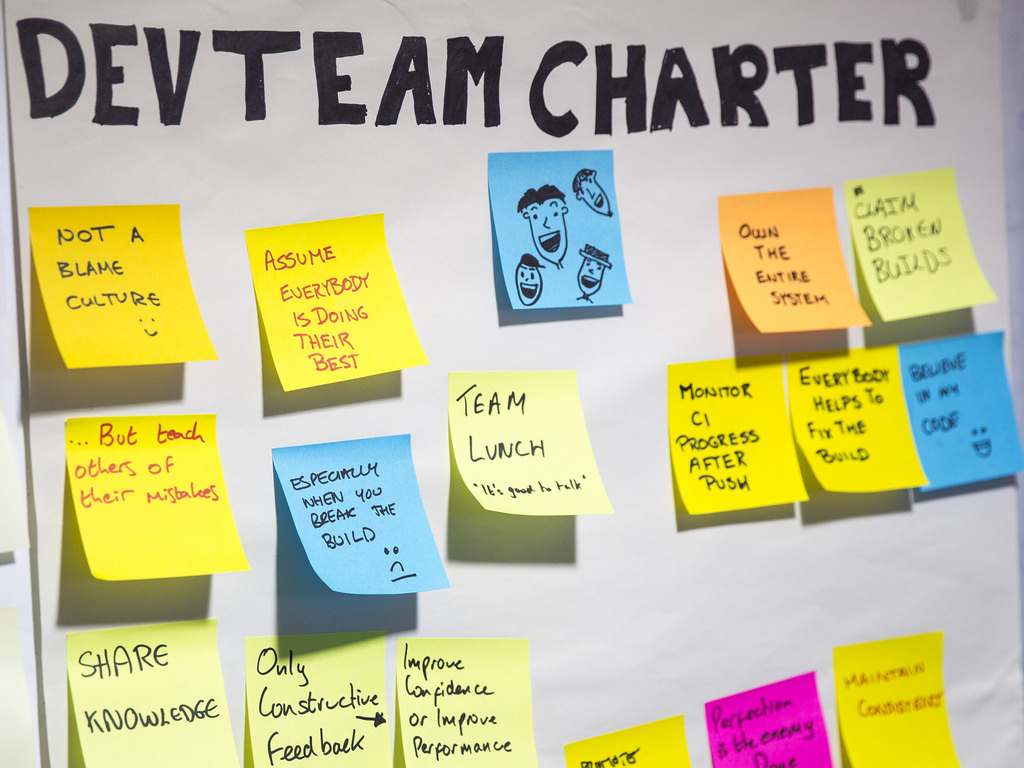 DEV TEAM CHARTER
NOT A
BLAME
CULTURE
ASSUME
EVERYBODY
IS DOING
THEIR
BEST
OWN
THE
ENTIRE
SYSTEM
CLAIM
BROKEN
BUILDS
... But teach
others of
their mistakes
ESPECIALLY
WHEN YOU
BREAK THE
BUILD
TEAM
LUNCH
"It's good to talk"
MONITOR
CI
PROGRESS
AFTER
PUSH
EVERYBODY
HELPS TO
FIX THE
BUILD
BELIEVE
IN MY
CODE
SHARE
KNOWLEDGE
Only
Constructive
Feedback
Improve
Confidence
or Improve
Performance
PROMOTE
Perfection
is the enemy
Done
MAINTAIN
CONSISTENCY